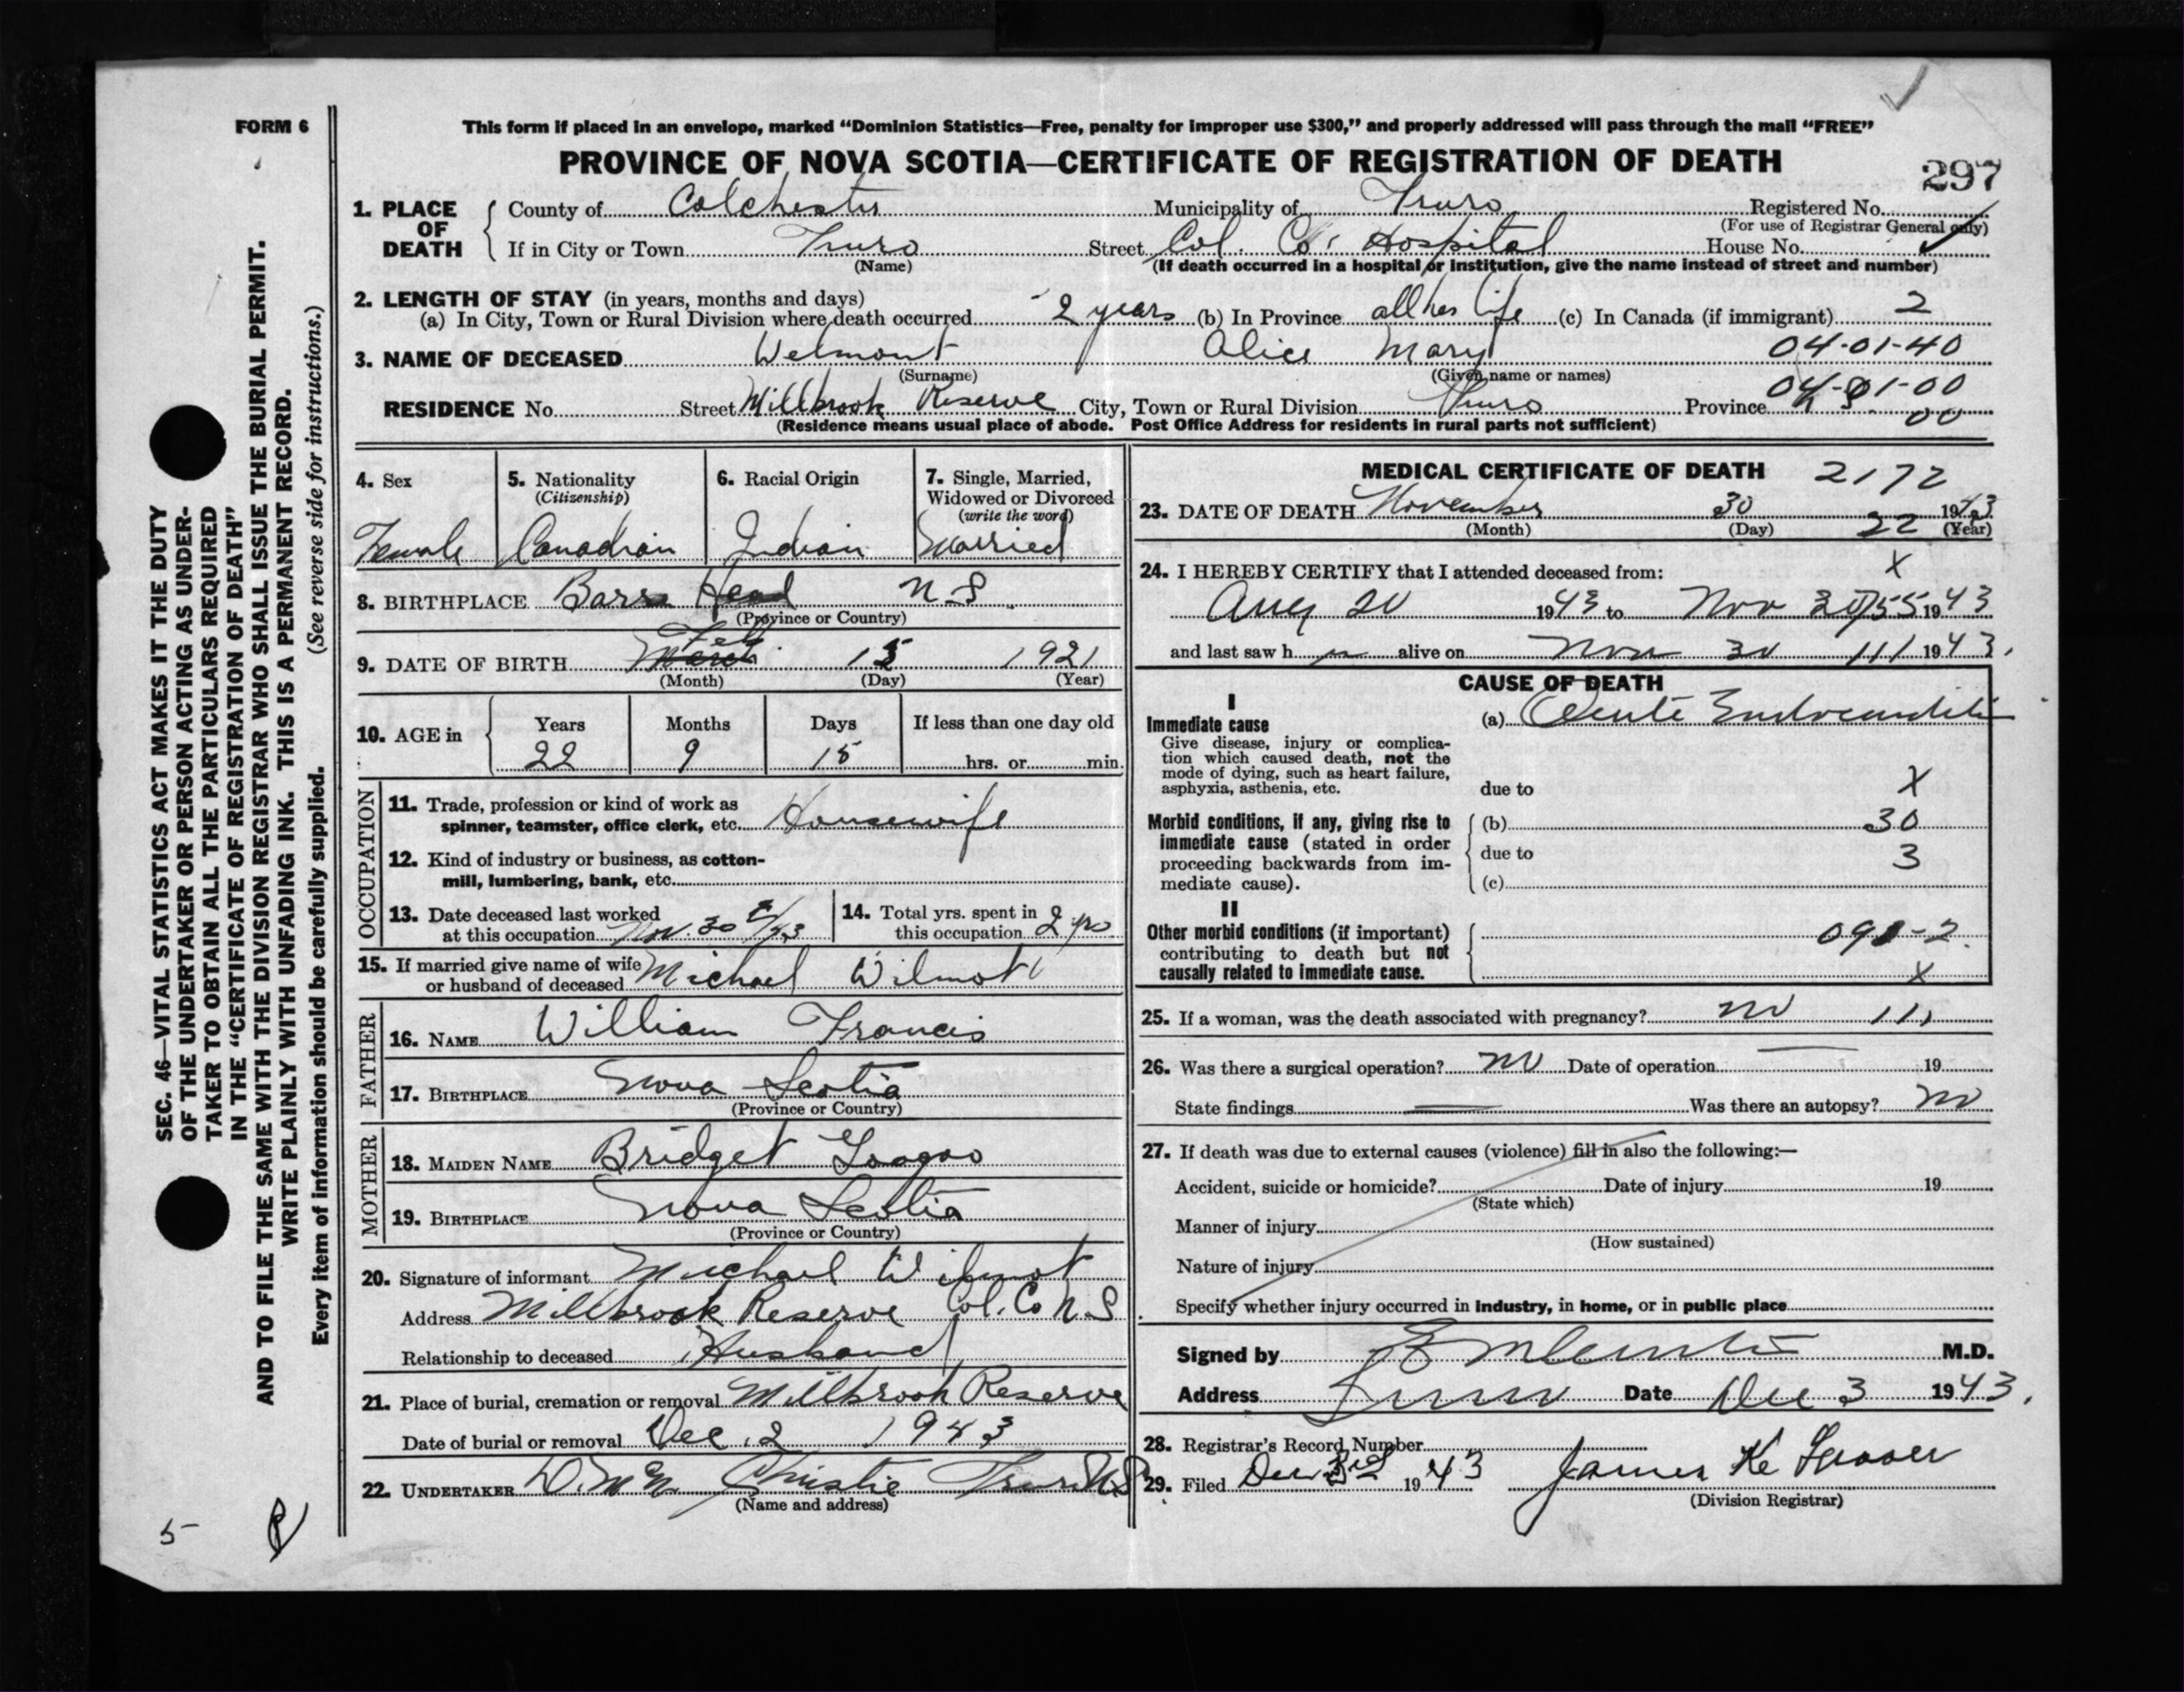 FORM 6
This form if placed in an envelope, marked “Dominion Statistics—Free, penalty for improper use $300,” and properly addressed will pass through the mail “FREE”
PROVINCE OF NOVA SCOTIA—CERTIFICATE OF REGISTRATION OF DEATH
297
1. PLACE OF DEATH County of Colchester Municipality of Truro Registered No.
(For use of Registrar General only)
If in City or Town Truro Street Col. Co. Hospital House No.
(Name) (If death occurred in a hospital or institution, give the name instead of street and number)
2. LENGTH OF STAY (in years, months and days)
(a) In City, Town or Rural Division where death occurred 2 years (b) In Province all her life (c) In Canada (if immigrant) 2
3. NAME OF DECEASED Welmont Alice Mary 04-01-40
(Surname) (Given name or names)
04-01-00
RESIDENCE No. Street Millbrook Reserve City, Town or Rural Division Truro Province N.S. 00
(Residence means usual place of abode. Post Office Address for residents in rural parts not sufficient)
4. Sex
Female
5. Nationality
(Citizenship)
Canadian
6. Racial Origin
Indian
7. Single, Married,
Widowed or Divorced
(write the word)
Married
8. BIRTHPLACE Barra Head N.S.
(Province or Country)
9. DATE OF BIRTH March Feb 15 1921
(Month) (Day) (Year)
10. AGE in Years Months Days If less than one day old
22 9 15 hrs. or min.
OCCUPATION
11. Trade, profession or kind of work as
spinner, teamster, office clerk, etc. Housewife
12. Kind of industry or business, as cotton-
mill, lumbering, bank, etc.
13. Date deceased last worked
at this occupation Nov. 30
14. Total yrs. spent in
this occupation 2 yrs
15. If married give name of wife
or husband of deceased Michael Wilmot
FATHER
16. NAME William Francis
17. BIRTHPLACE Nova Scotia
(Province or Country)
MOTHER
18. MAIDEN NAME Bridget Googoo
19. BIRTHPLACE Nova Scotia
(Province or Country)
20. Signature of informant Michael Wilmot
Address Millbrook Reserve Col. Co N.S.
Relationship to deceased Husband
21. Place of burial, cremation or removal Millbrook Reserve
Date of burial or removal Dec. 2 1943
22. UNDERTAKER Christie Truro N.S.
(Name and address)
MEDICAL CERTIFICATE OF DEATH 2172
23. DATE OF DEATH November 30 1943
(Month) (Day) 22 (Year)
24. I HEREBY CERTIFY that I attended deceased from: X
Aug 20 1943 to Nov 30 1943
and last saw h alive on Nov 30 111 1943.
CAUSE OF DEATH
I
Immediate cause
Give disease, injury or complica-
tion which caused death, not the
mode of dying, such as heart failure,
asphyxia, asthenia, etc.
(a) Acute Endocarditis
due to X
Morbid conditions, if any, giving rise to
immediate cause (stated in order
proceeding backwards from im-
mediate cause).
(b) 30
due to 3
(c)
II
Other morbid conditions (if important)
contributing to death but not
causally related to immediate cause.
X
25. If a woman, was the death associated with pregnancy? no 111
26. Was there a surgical operation? no Date of operation — 19
State findings — Was there an autopsy? no
27. If death was due to external causes (violence) fill in also the following:—
Accident, suicide or homicide? Date of injury 19
(State which)
Manner of injury
(How sustained)
Nature of injury
Specify whether injury occurred in industry, in home, or in public place
Signed by M.D.
Address Truro Date Dec 3 1943.
28. Registrar's Record Number
29. Filed Dec 3rd 1943 James
(Division Registrar)
SEC. 46—VITAL STATISTICS ACT MAKES IT THE DUTY
OF THE UNDERTAKER OR PERSON ACTING AS UNDER-
TAKER TO OBTAIN ALL THE PARTICULARS REQUIRED
IN THE “CERTIFICATE OF REGISTRATION OF DEATH”
AND TO FILE THE SAME WITH THE DIVISION REGISTRAR WHO SHALL ISSUE THE BURIAL PERMIT.
WRITE PLAINLY WITH UNFADING INK. THIS IS A PERMANENT RECORD.
Every item of information should be carefully supplied. (See reverse side for instructions.)
5